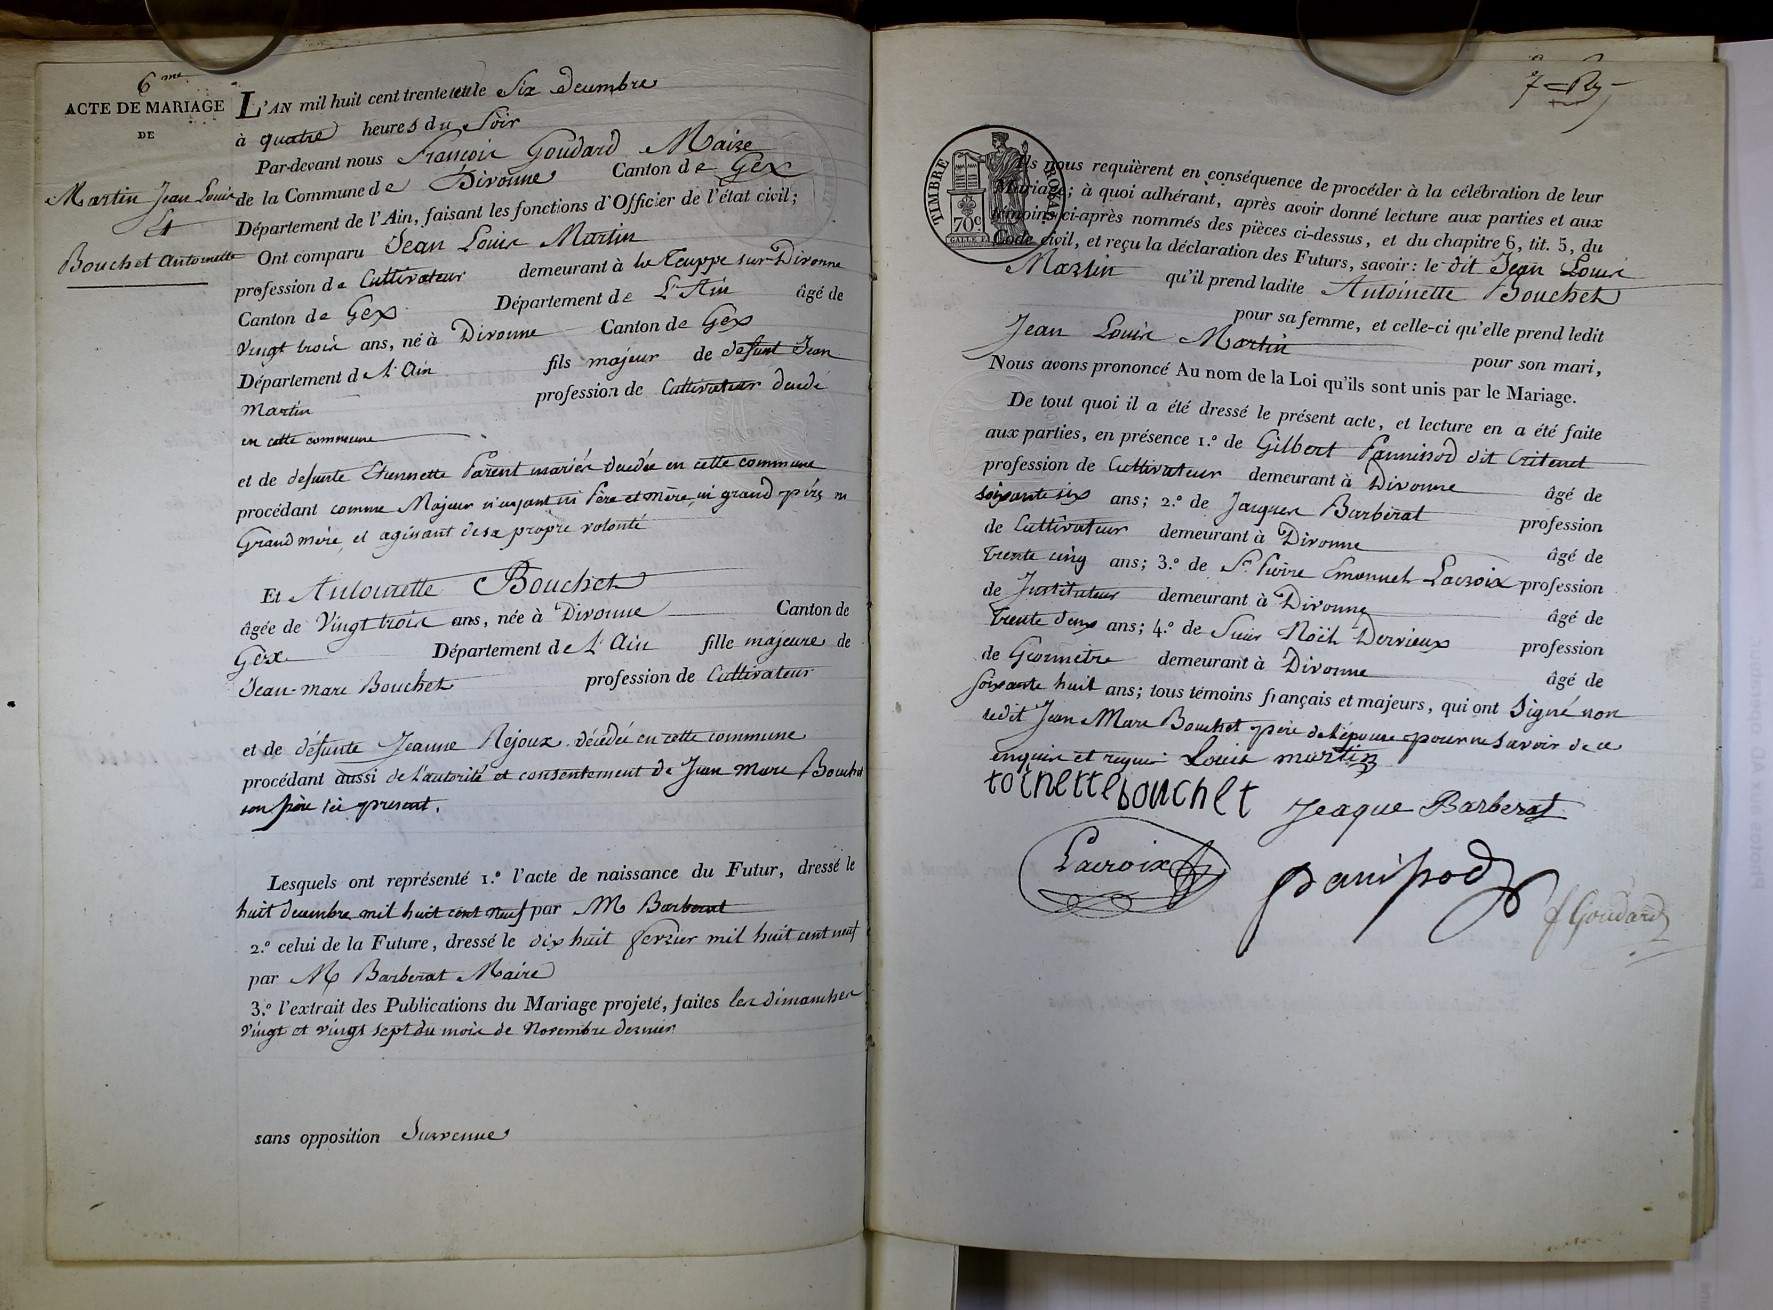 6me
ACTE DE MARIAGE
DE
Martin Jean Louis
et
Bouchet Antoinette
L'AN mil huit cent trente et le Six decembre
à quatre heures du Soir
Par-devant nous François Goudard Maire
de la Commune de Divonne Canton de Gex
Département de l'Ain, faisant les fonctions d'Officier de l'état civil;
Ont comparu Jean Louis Martin
profession de Cultivateur demeurant à la Teuppe sur Divonne
Canton de Gex Département de L'Ain âgé de
Vingt trois ans, né à Divonne Canton de Gex
Département de L'Ain fils majeur de defunt Jean
Martin profession de Cultivateur decedé
en cette commune
et de defunte Etiennette Parent mariés decedée en cette commune
procédant comme Majeur n'ayant ni Père et mère, ni grand père ni
Grand mère, et agissant de sa propre volonté
Et Antoinette Bouchet
âgée de Vingt trois ans, née à Divonne Canton de
Gex Département de L'Ain fille majeure de
Jean-marc Bouchet profession de Cultivateur
et de défunte Jeanne Rejoux décédée en cette commune
procédant aussi de l'autorité et consentement de Jean Marc Bouchet
son père ici present.
Lesquels ont représenté 1.º l'acte de naissance du Futur, dressé le
huit decembre mil huit cent neuf par M Barberat
2.º celui de la Future, dressé le dix huit fevrier mil huit cent neuf
par M Barberat Maire
3.º l'extrait des Publications du Mariage projeté, faites les dimanches
vingt et vingt sept du mois de Novembre dernier
sans opposition Survenue
TIMBRE ROYAL
70c
Ils nous requièrent en conséquence de procéder à la célébration de leur
Mariage; à quoi adhérant, après avoir donné lecture aux parties et aux
témoins ci-après nommés des pièces ci-dessus, et du chapitre 6, tit. 5, du
Code civil, et reçu la déclaration des Futurs, savoir: le dit Jean Louis
Martin qu'il prend ladite Antoinette Bouchet
pour sa femme, et celle-ci qu'elle prend ledit
Jean Louis Martin pour son mari,
Nous avons prononcé Au nom de la Loi qu'ils sont unis par le Mariage.
De tout quoi il a été dressé le présent acte, et lecture en a été faite
aux parties, en présence 1.º de Gilbert Pannissod dit
profession de Cultivateur demeurant à Divonne âgé de
soixante six ans; 2.º de Jacques Barberat profession
de Cultivateur demeurant à Divonne âgé de
Trente cinq ans; 3.º de Sr. Pierre Emanuel Lacroix profession
de Instituteur demeurant à Divonne âgé de
Trente deux ans; 4.º de Sieur Noël Dervieux profession
de Géometre demeurant à Divonne âgé de
soixante huit ans; tous témoins français et majeurs, qui ont Signé non
ledit Jean Marc Bouchet père de l'épouse pour ne Savoir de ce
enquis et requis Louis martin
toinette bouchet Jeaque Barberat
Lacroix panissod f Goudard